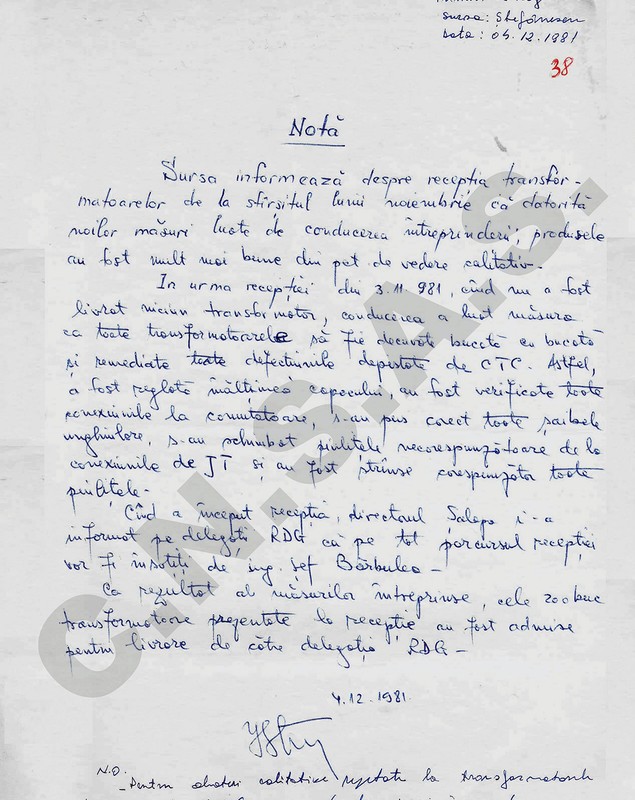 sursa: Ștefănescu
Data: 04.12.1981
38
Notă
Sursa informează despre recepția transfor-
matoarelor de la sfîrșitul lunii noiembrie că datorită
noilor măsuri luate de conducerea întreprinderii, produsele
au fost mult mai bune din pct de vedere calitativ.
In urma recepției din 3.11.981, cînd nu a fost
livrat niciun transformator, conducerea a luat măsura
ca toate transformatoarele să fie decuvate bucată cu bucată
și remediate toate defecțiunile depistate de CTC. Astfel,
a fost reglată înălțimea capacului, au fost verificate toate
conexiunile la comutatoare, s-au pus corect toate șaibele
unghiulare, s-au schimbat piulițele necorespunzătoare de la
conexiunile de JT și au fost strînse corespunzător toate
piulițele-
Cînd a început recepția, directorul Salapa i-a
informat pe delegații RDG că pe tot parcursul recepției
vor fi însoțiți de ing. șef Bărbulea-
Ca rezultat al măsurilor întreprinse, cele 200 buc
transformatoare prezentate la recepție au fost admise
pentru livrare de către delegația RDG-
4.12.1981
N.O.
-Pentru abateri calitative repetate la transformatoarele
C.N.S.A.S.